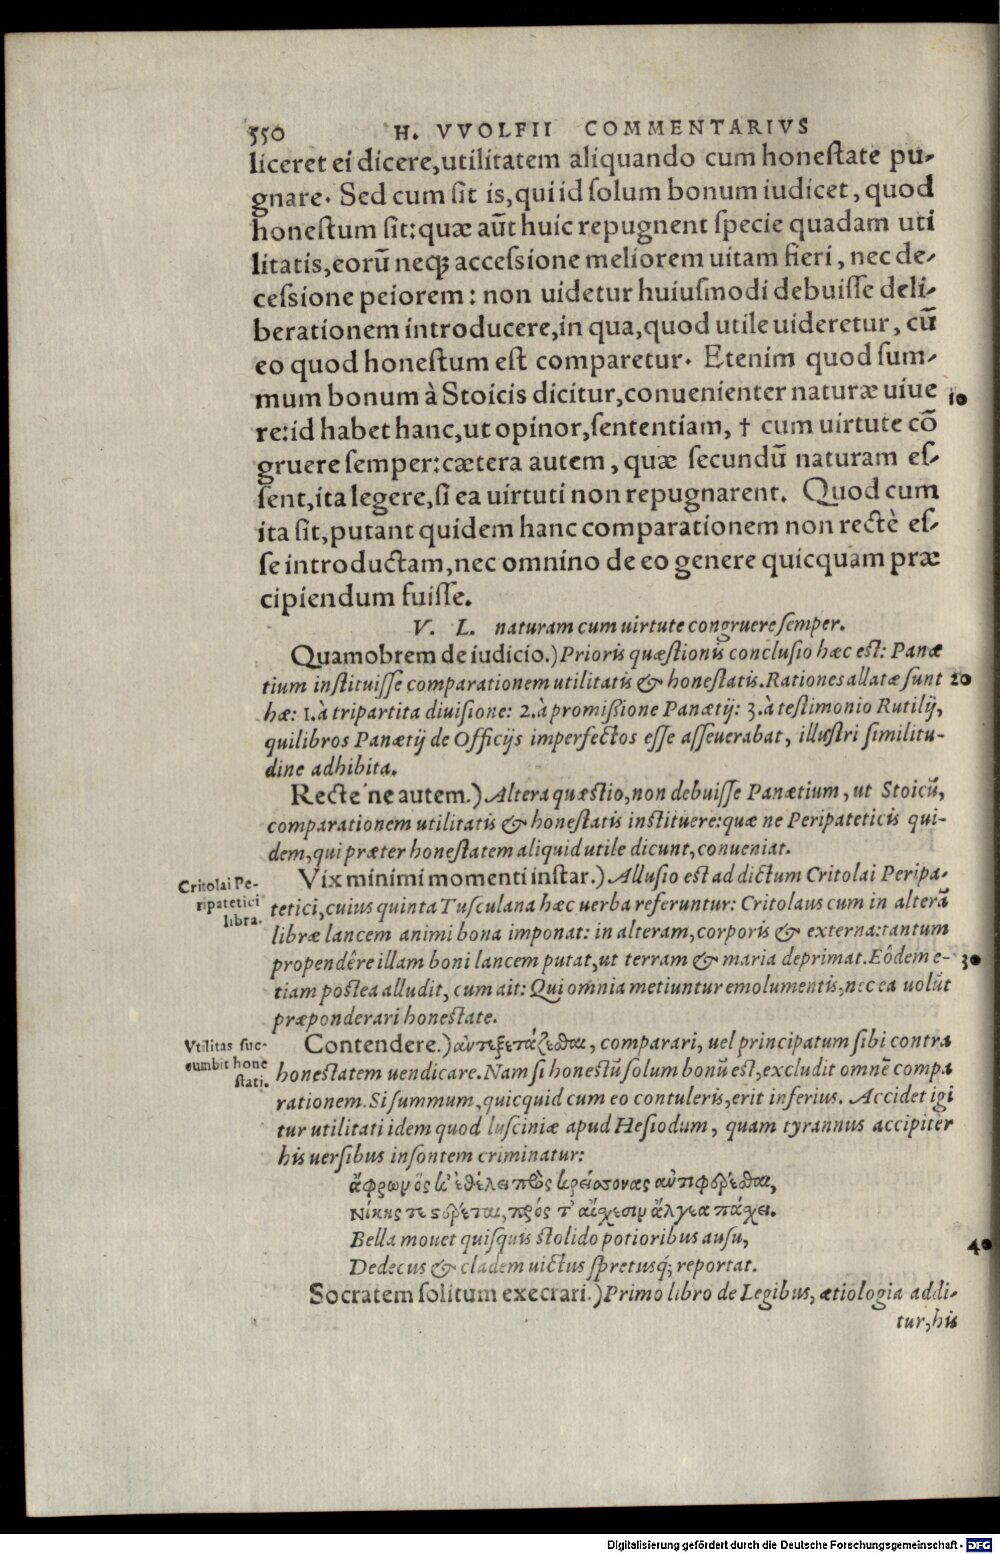 550 H. VVOLFII COMMENTARIVS
liceret ei dicere, utilitatem aliquando cum honestate pu-
gnare. Sed cum sit is, qui id solum bonum iudicet, quod
honestum sit: quæ aūt huic repugnent specie quadam uti
litatis, eorū neq; accessione meliorem uitam fieri, nec de-
cessione peiorem: non uidetur huiusmodi debuisse deli-
berationem introducere, in qua, quod utile uideretur, cū
eo quod honestum est compararetur. Etenim quod sum-
mum bonum à Stoicis dicitur, conuenienter naturæ uiue 10
re: id habet hanc, ut opinor, sententiam, † cum uirtute cō
gruere semper: cætera autem, quæ secundū naturam es-
sent, ita legere, si ea uirtuti non repugnarent. Quod cum
ita sit, putant quidem hanc comparationem non rectè es-
se introductam, nec omnino de eo genere quicquam præ
cipiendum fuisse.
V. L. naturam cum uirtute congruere semper.
Quamobrem de iudicio.) Prioris quæstionis conclusio hæc est: Panæ
tium instituisse comparationem utilitatis & honestatis. Rationes allatæ sunt 20
hæ: 1. à tripartita diuisione: 2. à promißione Panætij: 3. à testimonio Rutilij,
qui libros Panætij de Officijs imperfectos esse asseuerabat, illustri similitu-
dine adhibita.
Recte´ne autem.) Altera quæstio, non debuisse Panætium, ut Stoicū,
comparationem utilitatis & honestatis instituere: quæ ne Peripateticis qui-
dem, qui præter honestatem aliquid utile dicunt, conueniat.
Vix minimi momenti instar.) Allusio est ad dictum Critolai Peripa-
Critolai Pe-
ripatetici
libra.
tetici, cuius quinta Tusculana hæc uerba referuntur: Critolaus cum in alterā
libræ lancem animi bona imponat: in alteram, corporis & externa: tantum
propendêre illam boni lancem putat, ut terram & maria deprimat. Eôdem e- 30
tiam postea alludit, cum ait: Qui omnia metiuntur emolumentis, nec ea uolūt
præponderari honestate.
Contendere.) ἀντεξετάζεσθαι, comparari, uel principatum sibi contra
Vtilitas suc-
cumbit hone
stati.
honestatem uendicare. Nam si honestū solum bonū est, excludit omnē compa
rationem. Si summum, quicquid cum eo contuleris, erit inferius. Accidet igi
tur utilitati idem quod lusciniæ apud Hesiodum, quam tyrannus accipiter
his uersibus insontem criminatur:
ἄφρων ὅς κ' ἐθέλει πρὸς κρείσσονας ἀντιφερίζειν,
Νίκης τε στέρεται, πρός τ' αἴσχεσιν ἄλγεα πάσχει.
Bella mouet quisquis stolido potioribus ausu,
Dedecus & cladem uictus spretusq; reportat. 40
Socratem solitum execrari.) Primo libro de Legibus, ætiologia addi-
tur, his
Digitalisierung gefördert durch die Deutsche Forschungsgemeinschaft - DFG